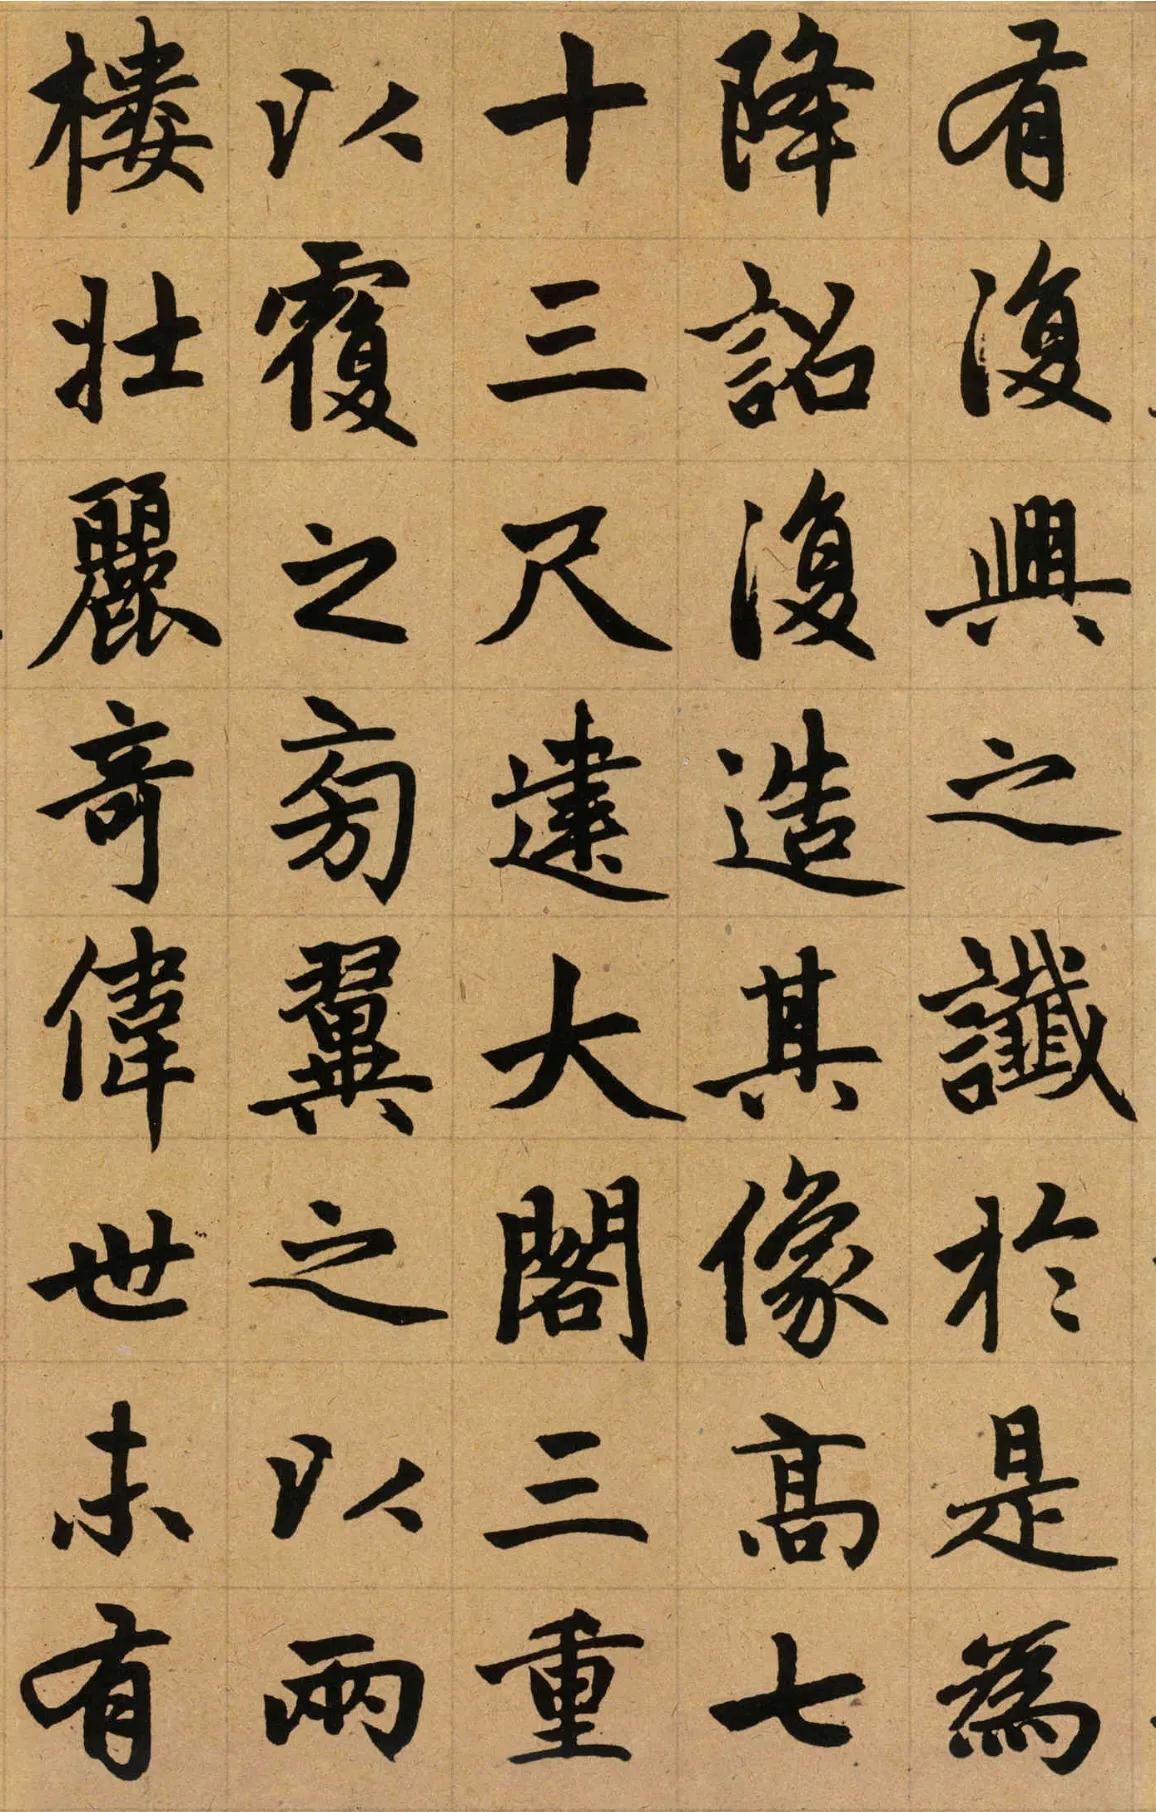 有復興之讖於是為
降詔復造其像高七
十三尺建大閣三重
以覆之旁翼之以兩
樓壯麗奇偉世未有